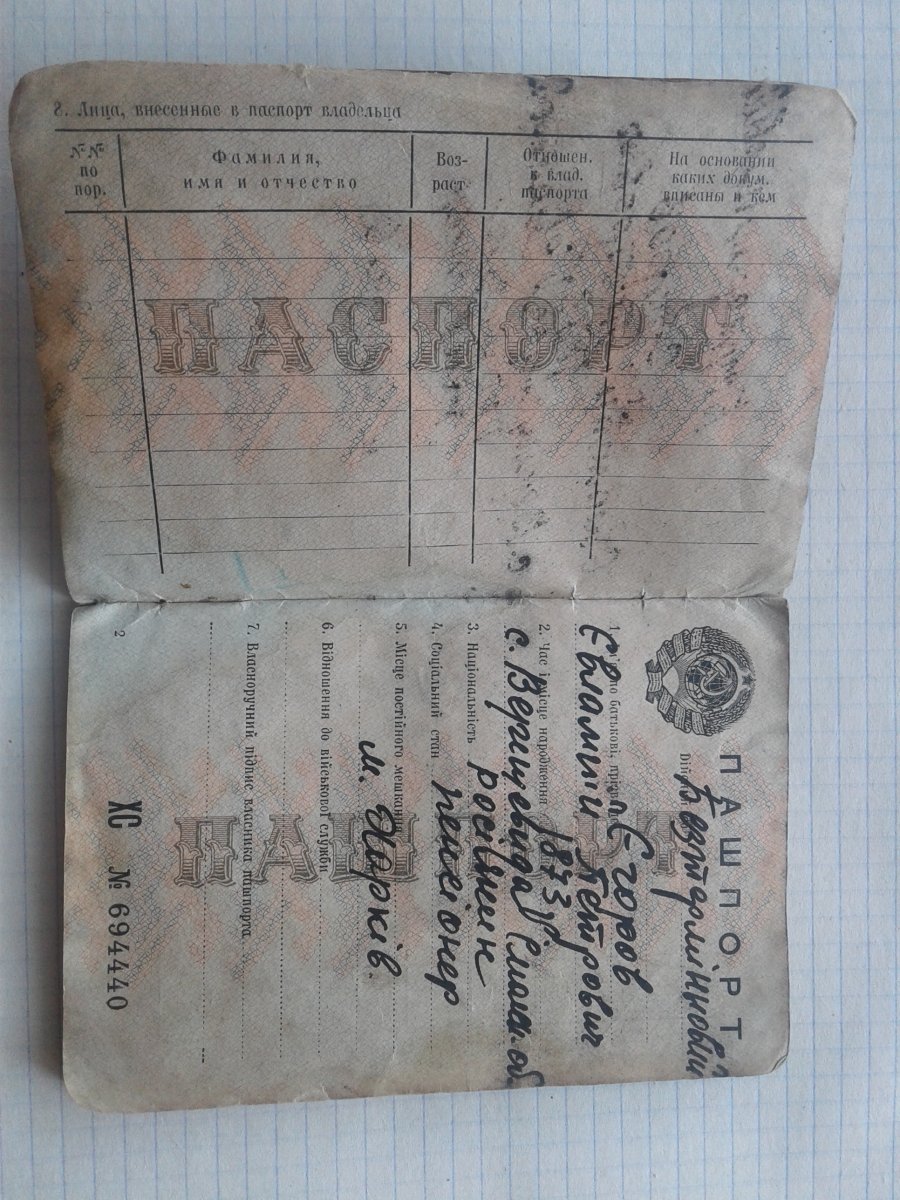 8. Лица, внесенные в паспорт владельца
№№ по пор.
Фамилия, имя и отчество
Воз-раст
Отношен. к влад. паспорта
На основании каких докум. вписаны и кем
ПАСПОРТ
ПАШПОРТ
Безтерміновий
1. батькові, прізв
Єгоров
Євлампий Петрович
2. Час і місце народження 1873 р.
с. Верищевида (Смол. об.
3. Національність росіянин
4. Соціальний стан пенсіонер
5. Місце постійного мешкання
м. Харків.
6. Відношення до військової служби
7. Власноручний підпис власника пашпорта
2
ХС № 694440